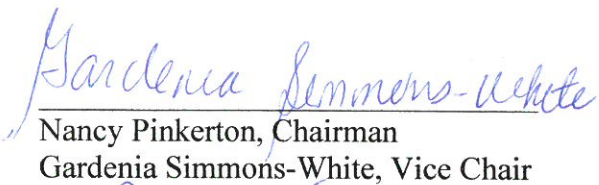 Gardenia Simmons-White
Nancy Pinkerton, Chairman
Gardenia Simmons-White, Vice Chair